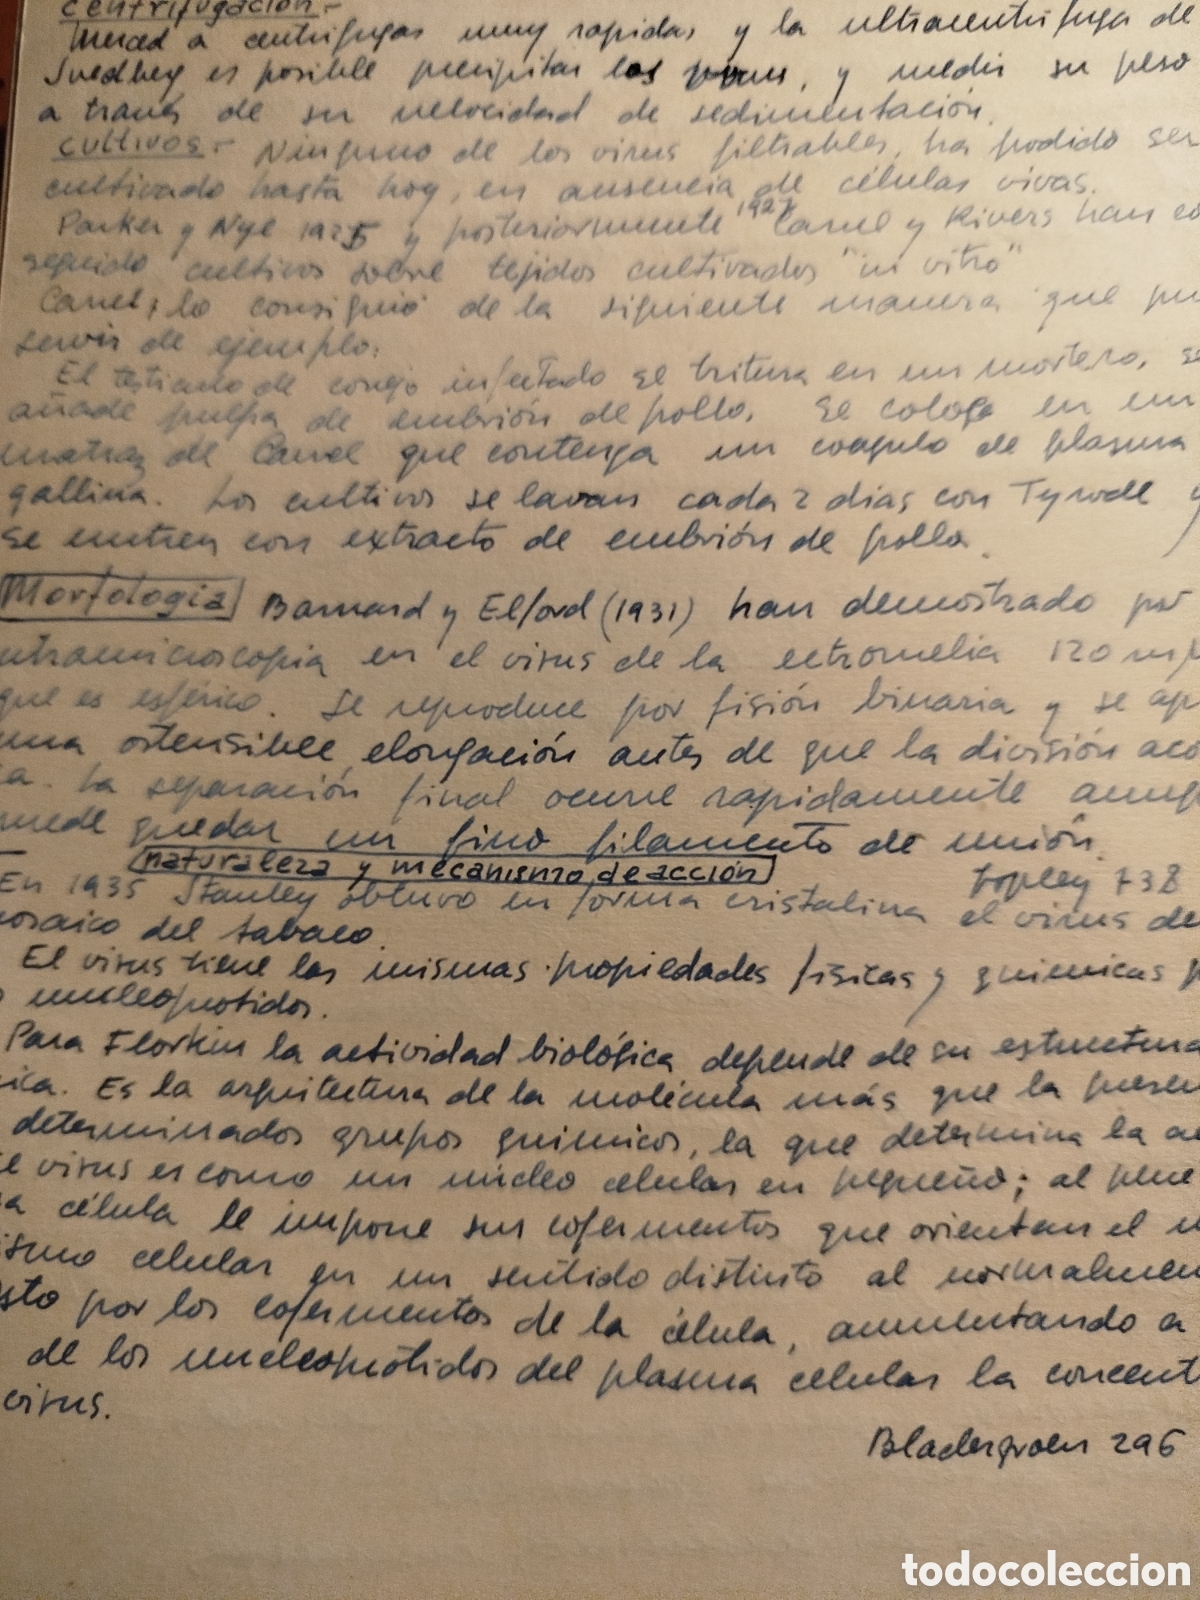 Centrifugación.-
Merced a centrifugas muy rapidas y la ultracentrifuga de
Svedberg es posible precipitar los virus, y medir su peso
a través de su velocidad de sedimentación.
Cultivos.- Ninguno de los virus filtrables, ha podido ser
cultivado hasta hoy, en ausencia de células vivas.
Parker y Nye 1925 y posteriormente 1927 Carrel y Rivers han co
seguido cultivos sobre tejidos cultivados "in vitro"
Carrel, lo consiguió de la siguiente manera que pu
servir de ejemplo:
El testiculo de conejo infectado se tritura en un mortero, se
añade pulpa de embrión de pollo. Se coloca en un
matraz de Carrel que contenga un coagulo de plasma
gallina. Los cultivos se lavan cada 2 dias con Tyrode y
se nutren con extracto de embrión de pollo.
Morfologia Barnard y Elford (1931) han demostrado por
ultramicroscopia en el virus de la ectromelia 120 mµ
que es esférico. Se reproduce por fisión binaria y se ap
una ostensible elongación antes de que la división aco
ca. La separación final ocurre rapidamente aunq
puede quedar un fino filamento de unión.
naturaleza y mecanismo de acción
Topley 738
En 1935 Stanley obtuvo en forma cristalina el virus de
mosaico del tabaco.
El virus tiene las mismas propiedades físicas y quimicas
nucleoprotidos.
Para Florkin la actividad biológica depende de su estructura
sica. Es la arquitectura de la molécula más que la presen
determinados grupos quimicos, la que determina la ac
el virus es como un nucleo celular en pequeño; al pene
sa célula le impone sus cofermentos que orientan el
ismo celular en un sentido distinto al normalmen
sto por los cofermentos de la célula, aumentando a
de los nucleoprótidos del plasma celular la concent
virus.
Bladergroen 296
todocoleccion